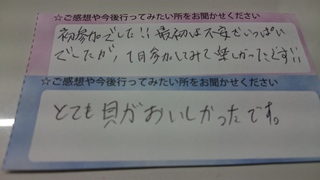 ☆ご感想や今後行ってみたい所をお聞かせください
初参加でした!!最初は不安でいっぱい
でしたが、1日参加してみて楽しかったです!!
☆ご感想や今後行ってみたい所をお聞かせください
とても貝がおいしかったです。